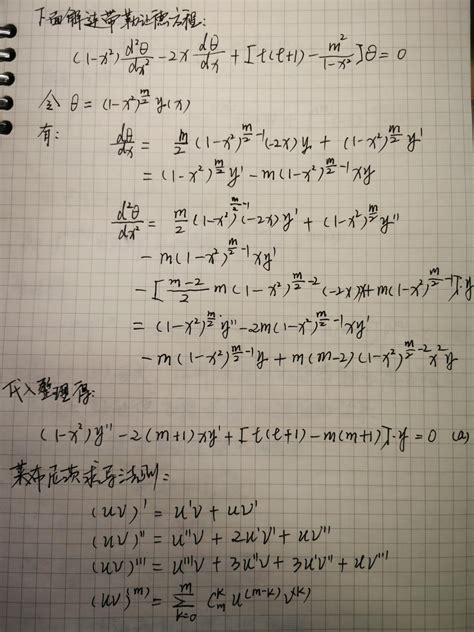 下面解连带勒让德方程:
(1-x²) d²θ/dx² - 2x dθ/dx + [ℓ(ℓ+1) - m²/(1-x²)]θ = 0
令 θ = (1-x²)^{m/2} y(x)
有: dθ/dx = m/2 (1-x²)^{m/2-1} (-2x) y + (1-x²)^{m/2} y'
= (1-x²)^{m/2} y' - m(1-x²)^{m/2-1} xy
d²θ/dx² = m/2 (1-x²)^{m/2-1} (-2x) y' + (1-x²)^{m/2} y''
- m(1-x²)^{m/2-1} xy'
- [(m-2)/2 m(1-x²)^{m/2-2} (-2x)x + m(1-x²)^{m/2-1}]·y
= (1-x²)^{m/2} y'' - 2m(1-x²)^{m/2-1} xy'
- m(1-x²)^{m/2-1} y + m(m-2)(1-x²)^{m/2-2} x² y
代入整理得:
(1-x²)y'' - 2(m+1)xy' + [ℓ(ℓ+1) - m(m+1)]·y = 0
莱布尼茨求导法则:
(uv)' = u'v + uv'
(uv)'' = u''v + 2u'v' + uv''
(uv)''' = u'''v + 3u''v' + 3u'v'' + uv'''
(uv)^{(m)} = Σ_{k=0}^{m} C_m^k u^{(m-k)} v^{(k)}